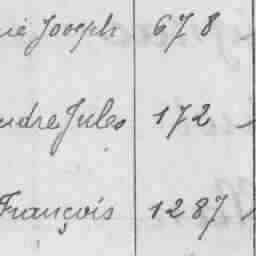 Joseph 678
Jules 172
François 1287